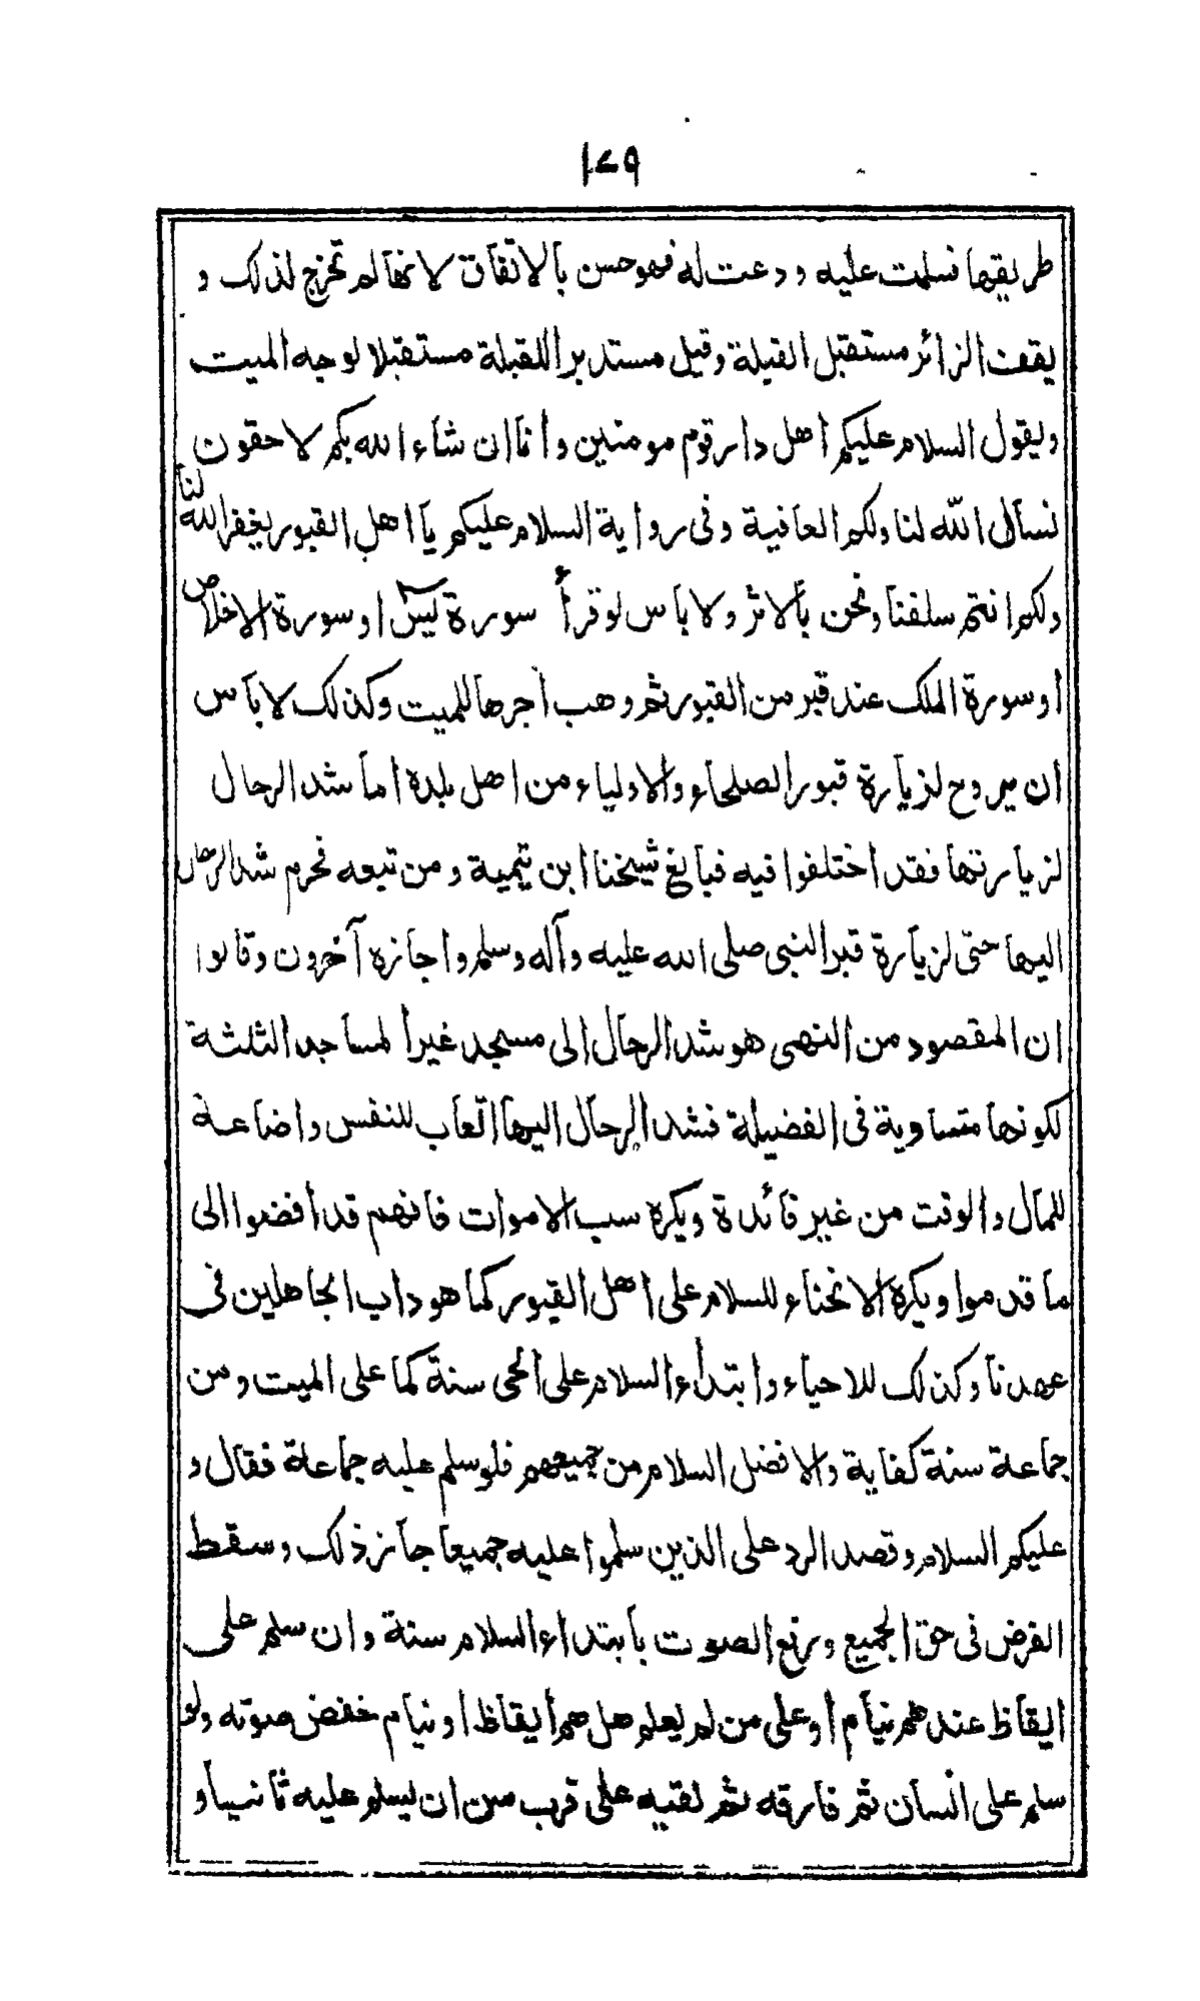 ١٤٩
طريقها فسلمت عليه ودعت له فهو حسن بالاتفاق لانها لم تخرج لذلك و
يقف الزائر مستقبل القبلة وقيل مستدبرا للقبلة مستقبلا لوجه الميت
ويقول السلام عليكم اهل دار قوم مومنين وانا ان شاء الله بكم لاحقون
نسأل الله لنا ولكم العافية وفي رواية السلام عليكم يا اهل القبور يغفر الله لنا
ولكم انتم سلفنا ونحن بالاثر ولا باس لو قرأ سورة يس او سورة الاخلاص
او سورة الملك عند قبر من القبور ثم وهب أجرها للميت وكذلك لا باس
ان يروح لزيارة قبور الصلحاء والاولياء من اهل بلده اما شد الرحال
لزيارتها فقد اختلفوا فيه فبالغ شيخنا ابن تيمية ومن تبعه فحرم شد الرحال
اليها حتى لزيارة قبر النبي صلى الله عليه وآله وسلم واجازه آخرون وقالوا
ان المقصود من النهى هو شد الرحال الى مسجد غير المساجد الثلثة
لكونها متساوية في الفضيلة فشد الرحال اليها اتعاب للنفس واضاعة
للمال والوقت من غير فائدة ويكره سب الاموات فانهم قد أفضوا الى
ما قدموا ويكره الانحناء للسلام على اهل القبور كما هو داب الجاهلين في
عهدنا وكذلك للاحياء وابتداء السلام على الحى سنة كما على الميت ومن
جماعة سنة كفاية والافضل السلام من جميعهم فلو سلم عليه جماعة فقال و
عليكم السلام وقصد الرد على الذين سلموا عليه جميعا جاز ذلك وسقط
الفرض في حق الجميع ورفع الصوت بابتداء السلام سنة وان سلم على
ايقاظ عندهم نيام أو على من لم يعلم هل هم أيقاظ او نيام خفض صوته ولو
سلم على انسان ثم فارقه ثم لقيه على قرب سن ان يسلم عليه ثانيا و